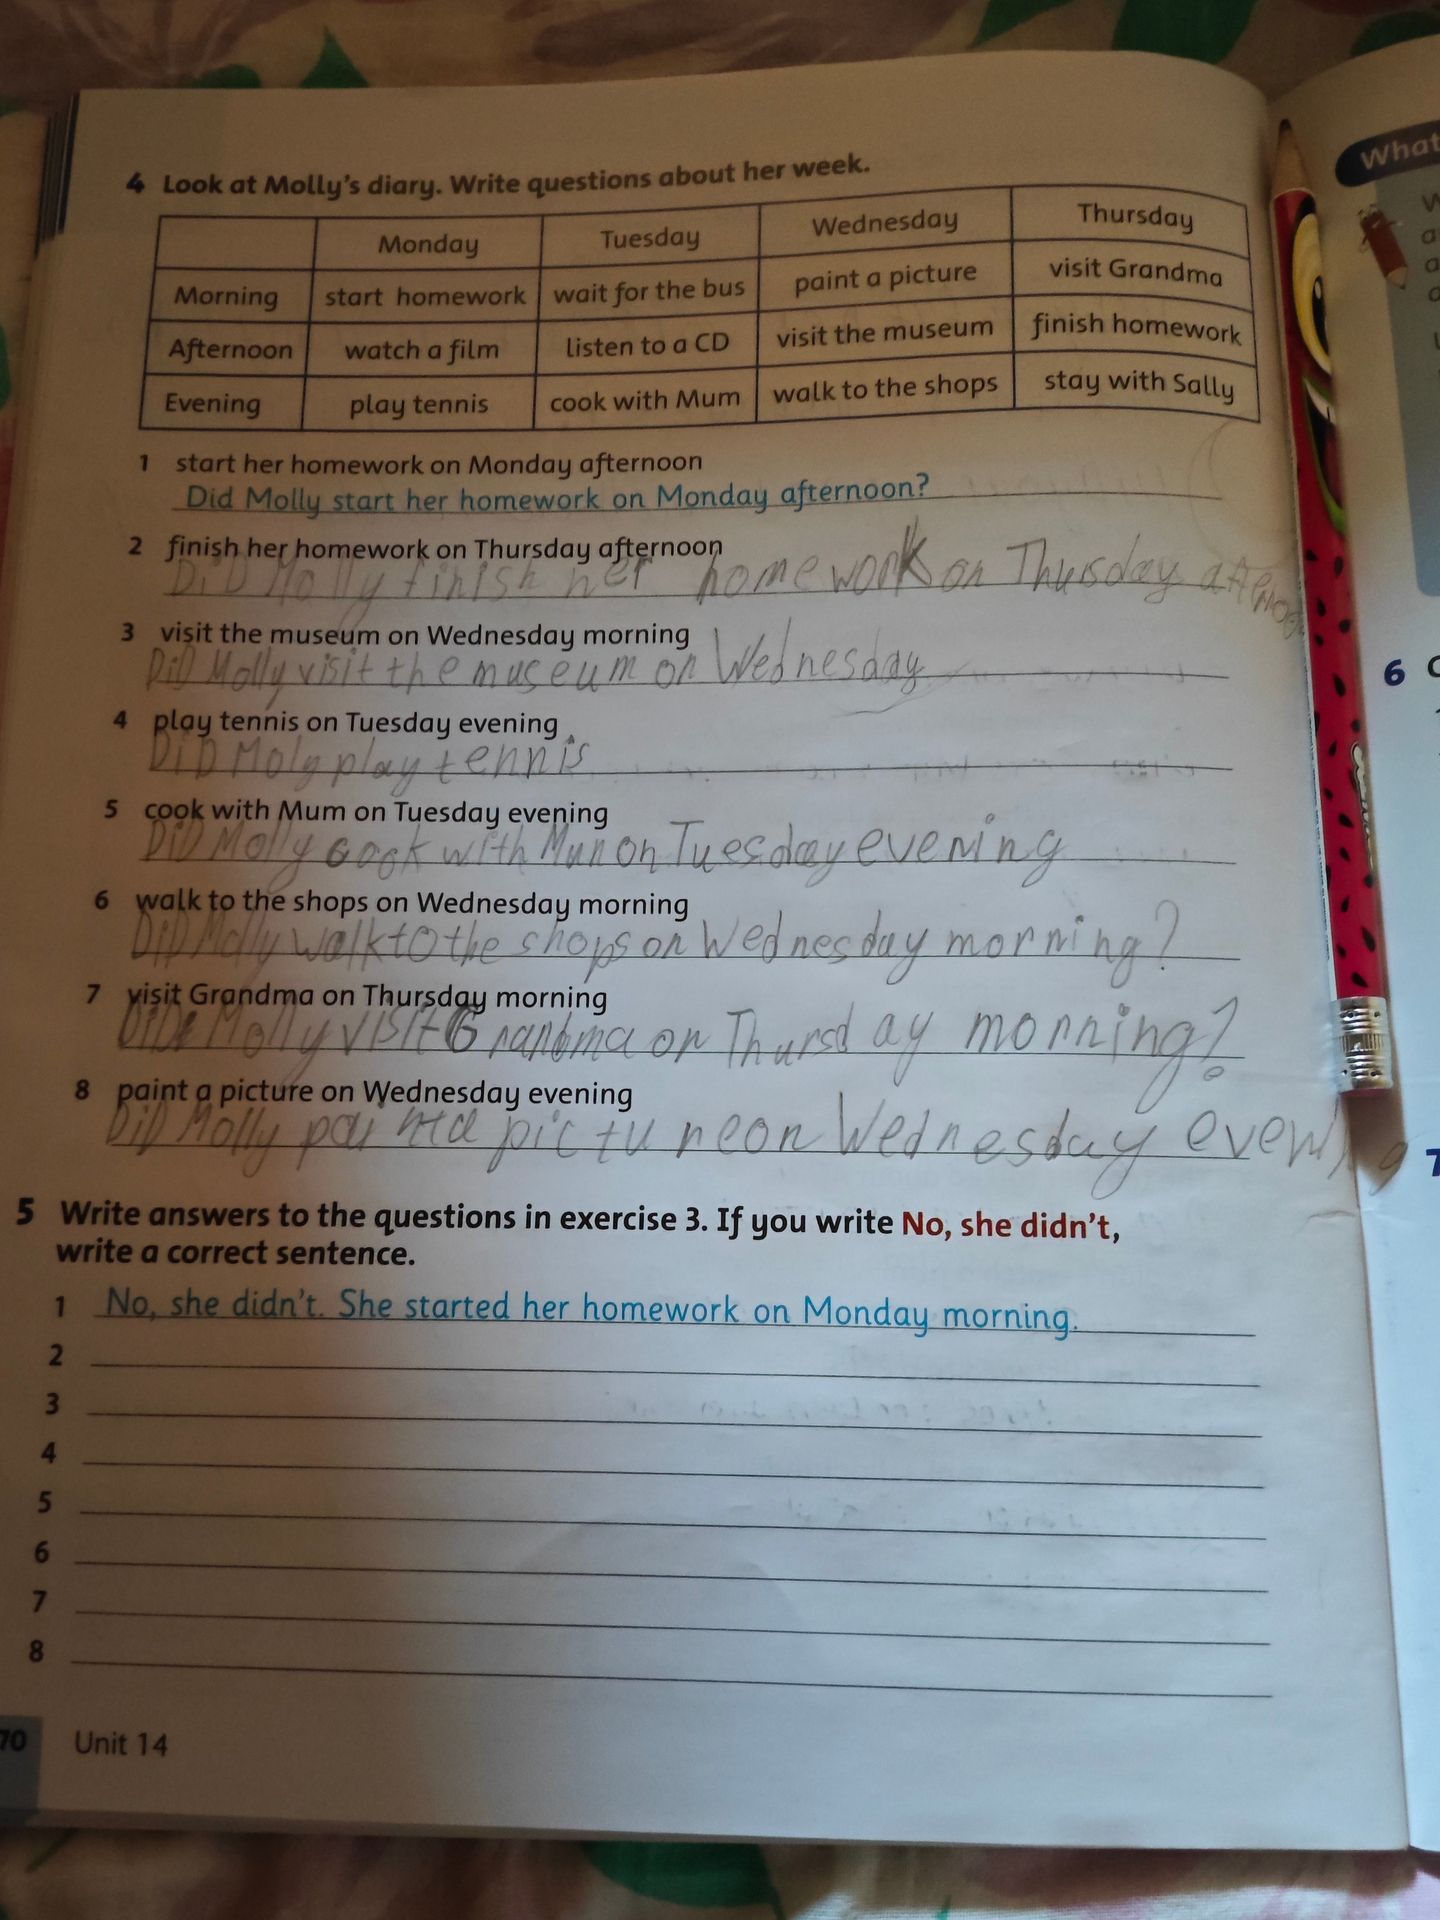 4 Look at Molly's diary. Write questions about her week.
Monday Tuesday Wednesday Thursday
Morning start homework wait for the bus paint a picture visit Grandma
Afternoon watch a film listen to a CD visit the museum finish homework
Evening play tennis cook with Mum walk to the shops stay with Sally
1 start her homework on Monday afternoon
Did Molly start her homework on Monday afternoon?
2 finish her homework on Thursday afternoon
DiD Molly finish her homework on Thursday
3 visit the museum on Wednesday morning
DiD Molly visit the museum on Wednesday
4 play tennis on Tuesday evening
DiD Moly play tennis
5 cook with Mum on Tuesday evening
DiD Molly cook with on Tuesday evening
6 walk to the shops on Wednesday morning
DiD Molly walk to the shops on Wednesday morning?
7 visit Grandma on Thursday morning
Molly visit on Thursday morning?
8 paint a picture on Wednesday evening
DiD Molly paint a picture on Wednesday evening
5 Write answers to the questions in exercise 3. If you write No, she didn't,
write a correct sentence.
1 No, she didn't. She started her homework on Monday morning.
2
3
4
5
6
7
8
70 Unit 14
What
6
7